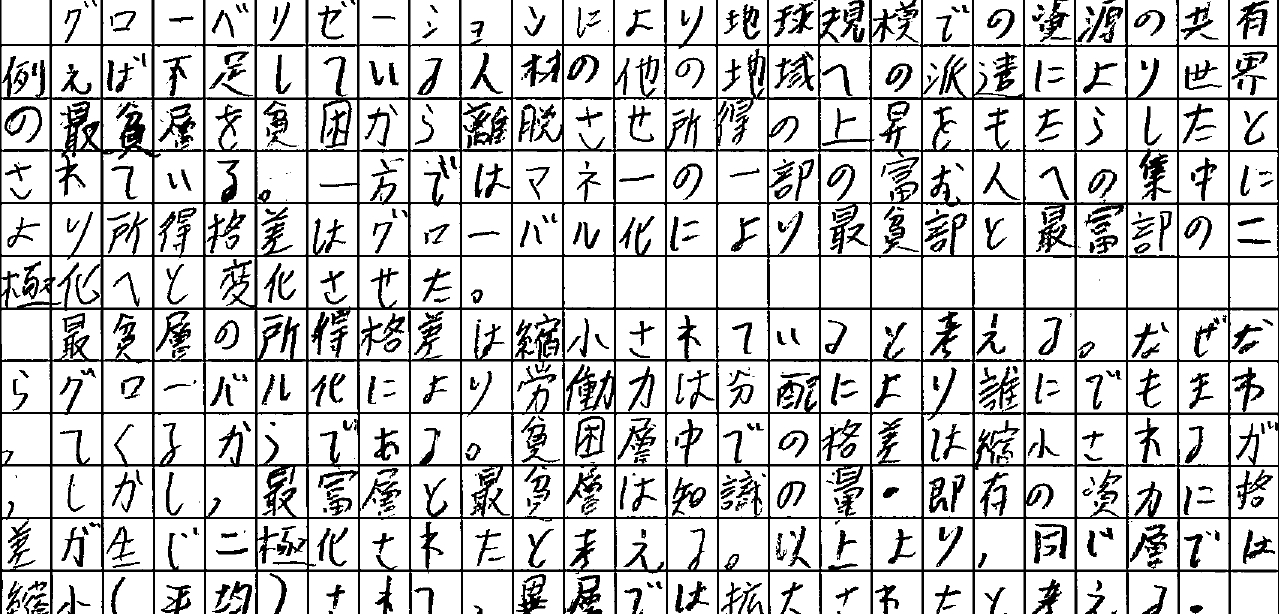 グローベリゼーションにより地球規模での資源の共有
例えば不足している人材の他の地域への派遣により世界
の最貧層を貧困から離脱させ所得の上昇をもたらしたと
されている。一方ではマネーの一部の富む人への集中に
より所得格差はグローバル化により最貧部と最富部の二
極化へと変化させた。
最貧層の所得格差は縮小されていると考える。なぜな
らグローバル化により労働力は分配により誰にでもまわ
ってくるからである。貧困層中での格差は縮小されるが
,しかし,最富層と最貧層は知識の量・即存の資力に格
差が生じ二極化されたと考える。以上より,同じ層では
縮小(平均)されて,異層では拡大されたと考える.